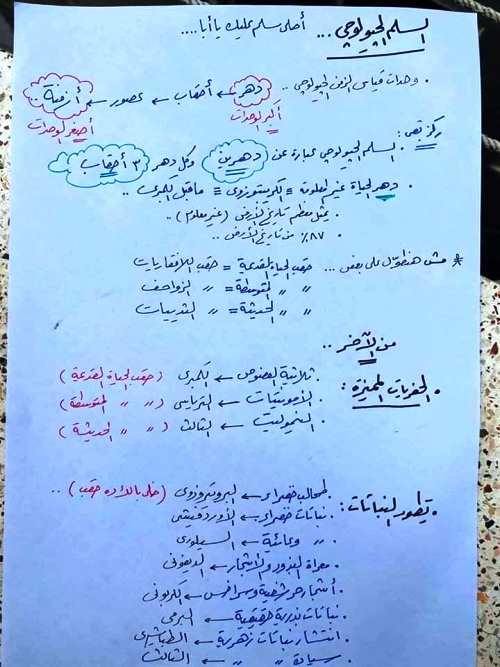 السلم الجيولوجي ... أحلى سلم عليك يا أبا ....
. وحدات قياس الزمن الجيولوجي .. دهر ← أحقاب ← عصور ← أزمنة ..
أكبر الوحدات
أصغر الوحدات
ركز بقى :
. السلم الجيولوجي عبارة عن دهرين وكل دهر ٣ أحقاب
. دهر الحياة غير المعلومة = الكريبتوزوي = ما قبل الكمبري ..
. يمثل معظم تاريخ الأرض (غير معلوم) ..
. ٨٧٪ من تاريخ الأرض ..
* مش هنطول على بعض ... حقب الحياة القديمة = حقب اللافقاريات
〃 〃 المتوسطة = 〃 الزواحف
〃 〃 الحديثة = 〃 الثدييات
من الآخر ..
. الحفريات المميزة :
. ثلاثية الفصوص ← الكمبري (حقب الحياة القديمة)
. الأمونيتات ← الترياسي (〃 〃 المتوسطة)
. النيموليت ← الثالث (〃 〃 الحديثة)
. تطور النباتات :
. طحالب خضراء ← البروتيروزوي (خلي بالك ده حقب) ..
. نباتات خضراء ← الأوردفيشي
. 〃 وعائية ← السيلوري
. معراة البذور والأشجار ← الديفوني
. أشجار حرشفية وسراخس ← الكربوني
. نباتات بذرية حقيقية ← البرمي
. انتشار نباتات زهرية ← الطباشيري
. سيادة 〃 〃 ← الثالث